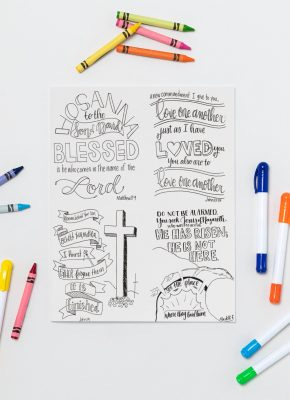 HOSANNA
to the
Son of David
BLESSED
is he who comes in the name of the
Lord
Matthew 21:9
a new commandment I give to you,
love one another
just as I have
LOVED you
You also are to
Love one another
John 13:34
I thirst
It is
finished
DO NOT BE ALARMED.
You seek Jesus of Nazareth,
who was crucified
HE HAS RISEN,
HE IS NOT
HERE.
see the place
where they laid him